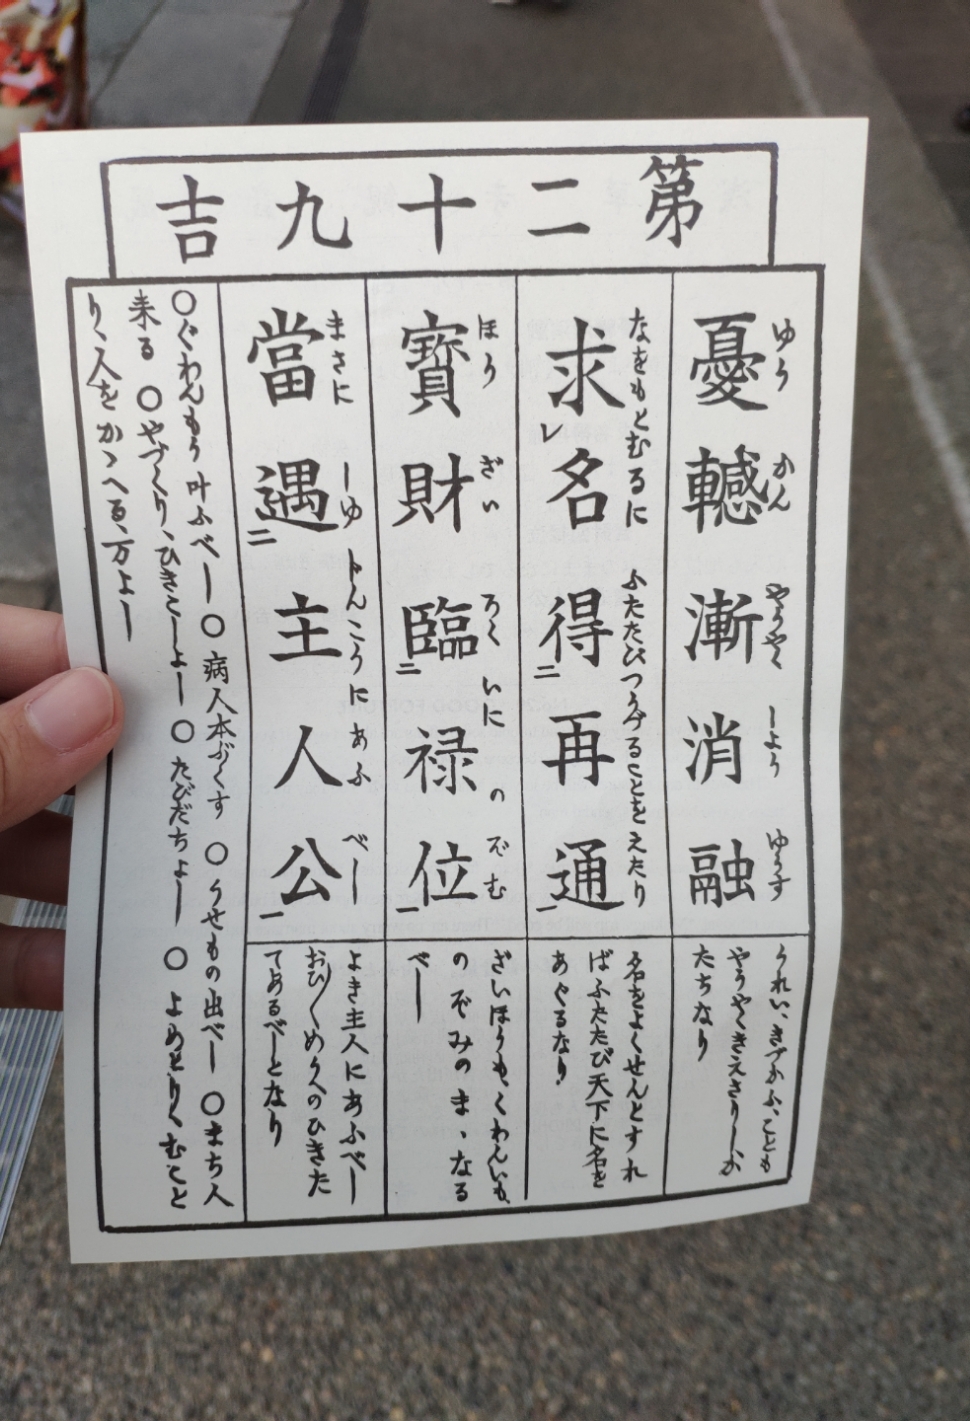 第二十九吉
憂轗漸消融
ゆう かん やうやく しよう ゆうす
求レ名得二再通一
なをもとむるに ふたたびつうずることをえたり
寳財臨二禄位一
ほう ざい ろく いに の ぞむ
當遇二主人公一
まさに しゆ じんこうに あふ べし
うれい、きづかふ、ことも
やうやくきえさりしか
たちなり
名をよくせんとすれ
ばふたたび天下に名を
あぐるなり
ざいほうも、くわんいも、
のぞみのまゝなる
べし
よき主人にあふべし
おひ〳〵めうへのひきた
てあるべしとなり
○ぐわんもう叶ふべし ○病人本ぶくす ○うせもの出べし ○まち人
来る ○やづくり、ひきこしよし ○たびだちよし ○よめとりむこと
り、人をかゝへる、万よし